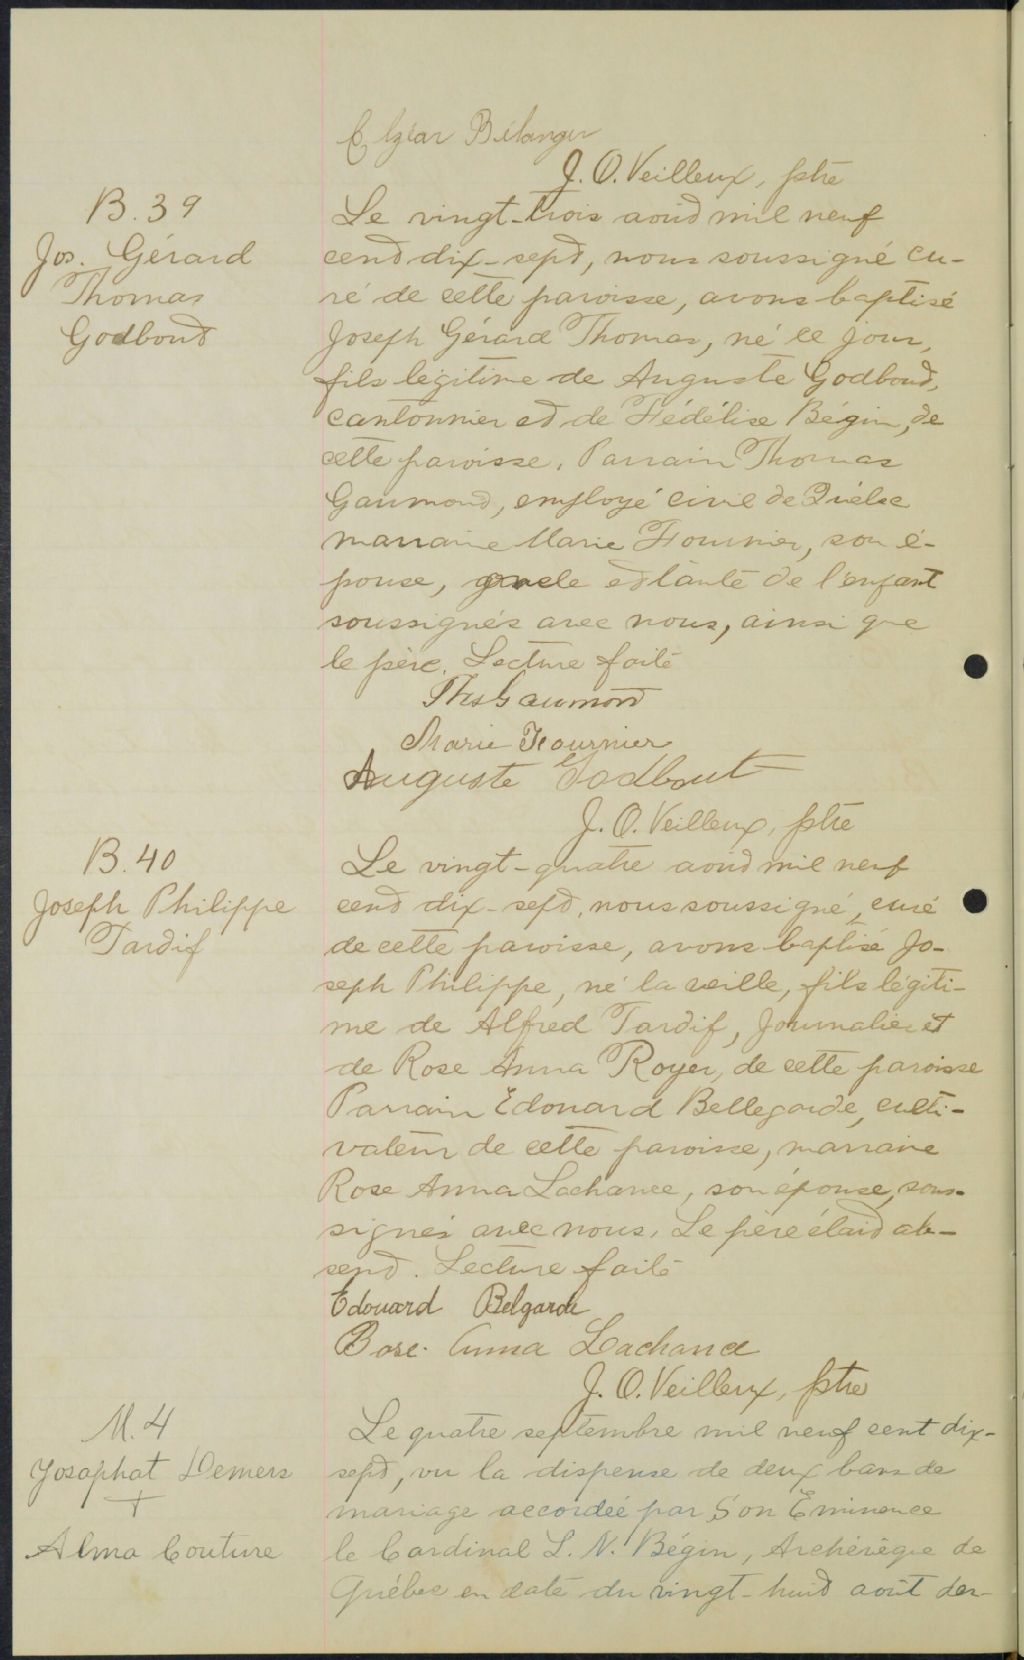 Elzéar Bélanger
J. O. Veilleux, ptre
B. 39
Jos. Gérard
Thomas
Godbout
Le vingt-trois août mil neuf
cent dix-sept, nous soussigné cu-
ré de cette paroisse, avons baptisé
Joseph Gérard Thomas, né ce jour,
fils légitime de Auguste Godbout,
cantonnier et de Fédélise Bégin, de
cette paroisse. Parrain Thomas
Gaumond, employé civil de Québec
marraine Marie Fournier, son é-
pouse, oncle et tante de l'enfant
soussignés avec nous, ainsi que
le père. Lecture faite
Ths Gaumond
Marie Fournier
Auguste Godbout
J. O. Veilleux, ptre
B. 40
Joseph Philippe
Tardif
Le vingt-quatre août mil neuf
cent dix-sept, nous soussigné, curé
de cette paroisse, avons baptisé Jo-
seph Philippe, né la veille, fils légiti-
me de Alfred Tardif, Journalier et
de Rose Anna Royer, de cette paroisse
Parrain Edouard Bellegarde, culti-
vateur de cette paroisse, marraine
Rose Anna Lachance, son épouse, sous-
signés avec nous. Le père était ab-
sent. Lecture faite
Edouard Belgarde
Rose Anna Lachance
J. O. Veilleux, ptre
M. 4
Josaphat Demers
+
Alma Couture
Le quatre septembre mil neuf cent dix-
sept, vu la dispense de deux bans de
mariage accordée par Son Eminence
le Cardinal L. N. Bégin, Archevêque de
Québec en date du vingt-huit août der-